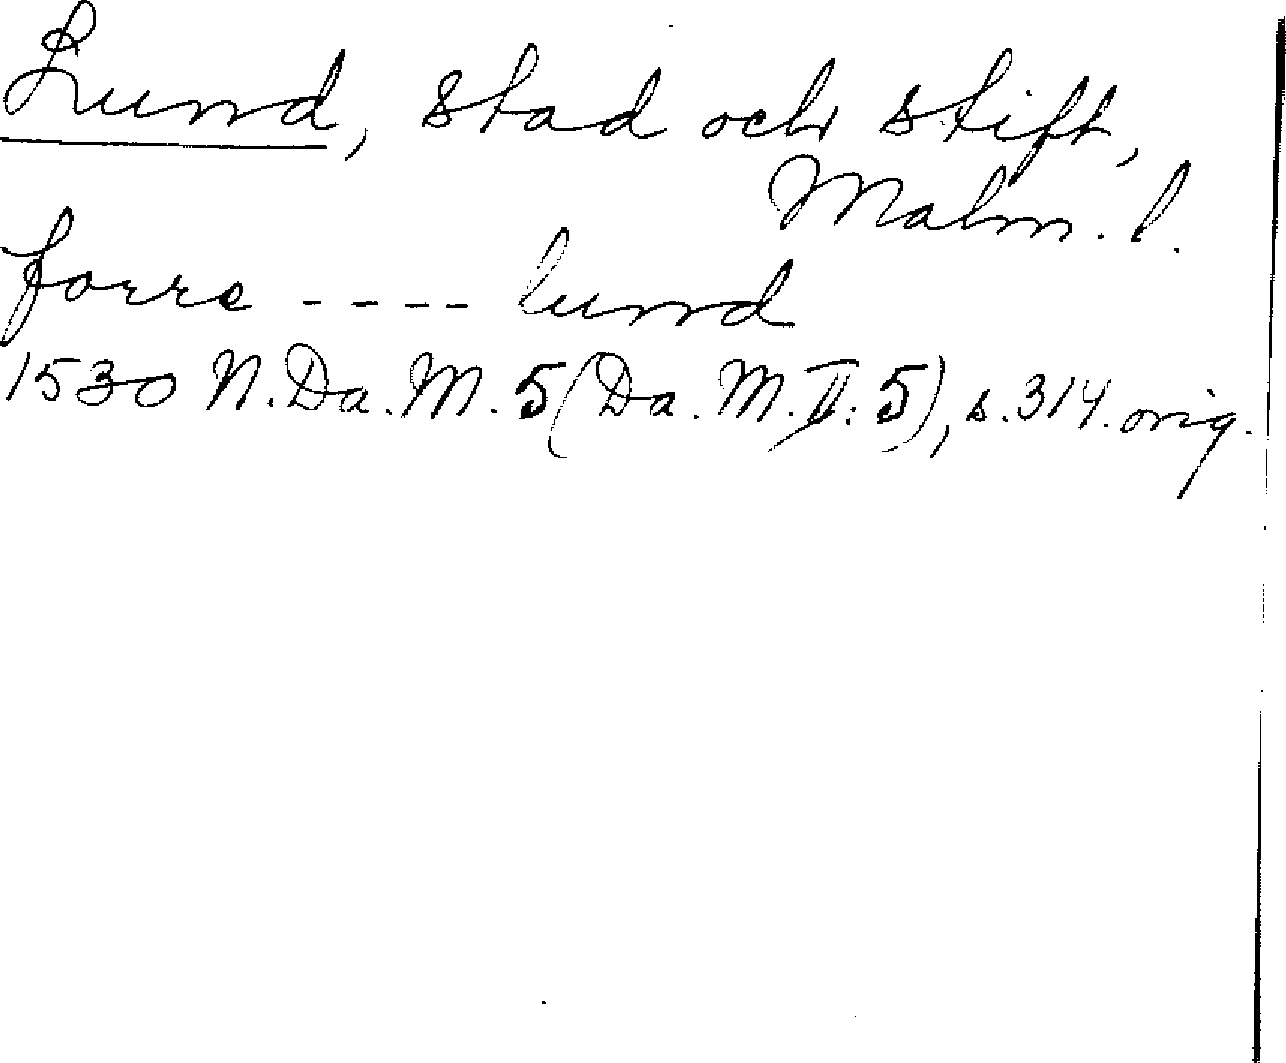 Lund, stad och stift,
Malm. l.
forre ---- lund
1530 N.Da.M. 5 (Da. M. II: 5), s. 314. orig.